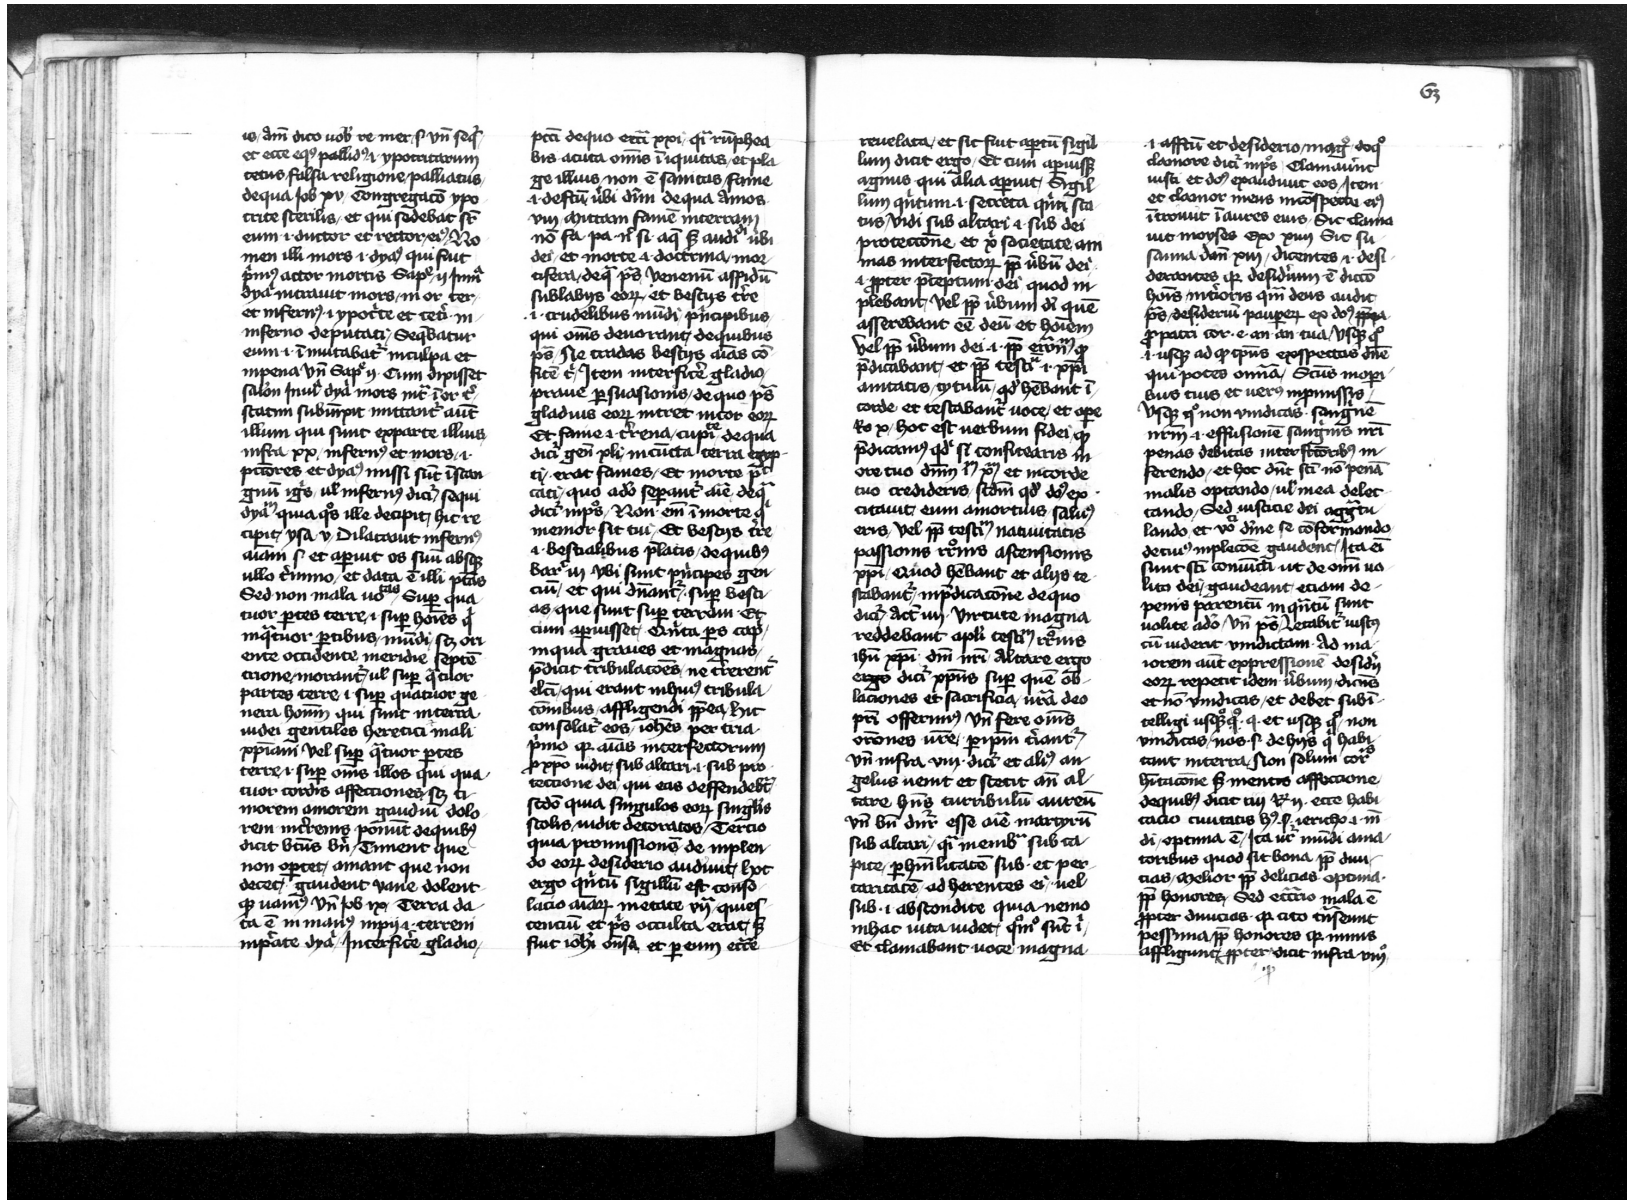 is / amē dico uob̄ re mer / s vn̄ seq̄
et ecce eqꝰ pallidꝰ · i · ypocritarum
cetus / falsa religione palliatus /
de qua Job xv / Congregacō ypo
crite sterilis / et qui sedebat sr̄
eum · i · ductor et rector eiꝰ / No
men illi mors · i · dyaꝰ qui fuit
p̄mꝰ actor mortis Sapꝰ ij Inuiª
dyaꝰ intrauit mors / in or ter /
et infernꝰ · i · ypocrite et ceti in
inferno deputati / Sequebatur
eum · i · īmutabat᷑ in culpa et
in pena vn̄ Sapꝰ ij · Cum dixisset
salōn Inuiᵃ dyaꝰ mors int᷑ ī or t᷑
statim subiūxit imitant᷑ aūt
illum qui sunt ex parte illius
infra xx / infernꝰ et mors / · i ·
pctōres et dyaꝰ missi sūt ī stan
gnū ig̅s / ul̕ infernꝰ dici᷑ sequi
dyaꝰ quia qͦs ille decipit / hic re
cipit / ysa · v · Dilatauit infernꝰ
aīam s et aperuit os suū absqꝫ
ullo t̄mino / et data ē illi ptās
Sed non mala uoᵗᵃˢ / Suꝑ qua
tuor ꝑtes terre / · i · suꝑ hoīes qⁱ
in qᵃtuor ꝑtibus / mūdi / scꝫ ori
ente occidente meridie septē
trione / morant᷑ / ul̕ suꝑ qᵃtuor
partes terre · i · suꝑ quatuor ge
nera homīm qui sunt in terra
iudei gentiles heretici mali
xp̄iani Vel suꝑ qᵃtuor ꝑtes
terre · i · suꝑ om̄s illos qui qua
tuor cordis affectiones / scꝫ ti
morem amorem gaudiū dolo
rem in t̄renis ponūt de quibꝰ
dicit bt̄us bn̄ / Timent que
non oportet / amant que non
decet / gaudent vane dolent
qꝫ uaniꝰ Vn̄ Job ix / Terra da
ta ē in manꝰ impij · i · terreni
in ptāte dyaꝰ / Interficere gladio /
pcti de quo eccī xxi / qⁱ rūphea
bis acuta om̄s īiquitas / et pla
ge illius non ē sanitas / fame
· i · defectū ūbi dīm de qua Amos
viij Mittam famē in terram
nō fa · pa · nͨ si · aqͤ sꝫ audiᵈⁱ ūbi
dei / et morte · i · doctrina / mor
tifera / de qᵃ ps̄ / Venenū aspidū
sub labijs eorꝫ / et bestijs t̄re
· i · crudelibus mūdi p̄ncipibus
qui om̄s deuorant / de quibus
ps̄ / Ne tradas bestijs aīas cō
fitē t᷑ / Item interficere gladio /
praue ꝑsuasionis / de quo ps̄
gladius eorꝫ intret in cor eorꝫ
Et fame · i · t̄rena / cupiᵗᵉ de qua
dici᷑ gen̄ xli / in cuncta terra egyp
ti / erat fames / Et morte pͨcͭ
cati / quo ad deum seperant᷑ aīe / de qᵃ
dici᷑ in ps̄ / Non enī ī morte qⁱ
memor sit tui / Et bestijs t̄re
· i · bestialibus p̄latis / de quibꝰ
bar᷑ iij Vbi sunt p̄ncipes gen
cium / et qui dn̄ant᷑ / suꝑ besti
as / que sunt suꝑ terram · Et
cum aperuisset / Quīta ꝑs capͥ /
in qua graues et magnas
p̄dicit tribulacōes / ne t̄rerent᷑
elcī / qui erant in huiꝰ tribula
cōnibus / affligendi ꝓpt̄ea / hic
consolat᷑ eos / iohēs per tria
p̄mo qꝫ aīas interfectorum
ꝓ xpō uidit / sub altari · i · sub pro
teccione dei / qui eas deffendebᵗ᷑
scdō quia singulos eorꝫ singul̕is
stolis / uidit decoratos / Tercio
quia promissionē de implen
do eorꝫ desiderio audiuit / hoc
ergo qᵘītū sigillū est conso
lacio aīarꝫ in etate vijᵃ / quies
cenciū et pꝰs occulta erat / sꝫ
fuit iohī on̄sa / et ꝑ eum eccē
reuelata / et sic fuit aꝑtū sigil
lum dicit ergo / Et cum aperuissꝫ
agnus qui alia aperuit / Sigil
lum qᵘītum · i · secreta qⁱnti sta
tus / Vidi sub altari · i · sub dei
proteccōne et xͥ societate ani
mas interfectorꝫ ꝓp̄ ūbū dei
· i · ꝓpter p̄ceptum dei quod im
plebant / Vel ꝓp̄ ūbum dī quē
asserebant eē deū et hoīem
Vel ꝓp̄ ūbum dei · i · ꝓp̄ euāg̅m qͩ
p̄dicabant / et ꝓp̄ testiᵘ · i · xp̄i
anitatis / tytulū / qd̄ hēbant ī
corde et testabant᷑ uoce / et oꝑe
Ro x / hoc est uerbum fidei / qͩ
p̄dicamꝰ qd̄ si confitearis in
ore tuo dnm̄ ihm̄ xꝫ et in corde
tuo credideris / scdm̄ qd̄ dꝰ ex
citauit eum a mortuis saluꝰ
eris / Vel ꝓp̄ testiᵐ natiuitatis
passionis r̄rōnis ascensionis
xp̄i / Quod hēbant et alijs te
stabant᷑ / in p̄dicacōne de quo
dici᷑ actī iiij / Virtute magna
reddebant apl̄i testiᵐ r̄rōnis
ihū xp̄i dn̄i nr̄i Altare ergo
ergo dici᷑ xp̄us suꝑ quē ob
laciones et sacrificia / nr̄a deo
pr̄i offerimꝰ Vn̄ fere om̄s
orōnes nr̄e / ꝑ ip̄m t̄mīant᷑
Vn̄ infra viij · dici᷑ et aliꝰ an
gelus uenit et stetit an̄ al
tare hn̄s turribulū aureū
Vn̄ bn̄ dn̄r̄ esse aīe martyrū
sub altari / qⁱ membᵃ sub ca
pite / ꝑ humilitatē sub · et per
caritatē adherentes ei · uel
sub · i · abscondite quia nemo
in hac uita uidet / qᵐō sūt ī /
Et clamabant uoce magna
63
· i · affcū et desiderio / magͦ / de qͦ
clamore dici᷑ in ps̄ / Clamauer̄t
iusti et dꝰ exaudiuit eos / Item
et clamor meus in cōspectu eiꝰ
ītrouit ī aures eius / Sic clama
uit moyses Exo xiiij Sic su
sanna dan̄ xiij / dicentes · i · desi
derantes qꝫ desid̄ium ē dictō
hoīs / int̄ioris qᵘm deus audit
ps̄ / desideriū pauperꝫ ex dꝰ
p̄pacci cor · e · an an tua / Vsqꝫ qͦ
· i · usqꝫ ad qͦ tp̄us exspectas dn̄e
qui potes om̄ia / Scūs in oꝑi
bus tuis et uerꝰ in pmissis /
Vsqꝫ qͦ non vindicas sanguinē
nr̄m · i · effusionē sanguīs nr̄i
penas debitas interfcōribꝰ in
ferendo / et hoc dn̄t scī nō penā
malis optando / ul̕ in ea delec
tando / Sed iusticie dei agr̄tu
lando / et uoᵗⁱ dīne se conformando
de cuiꝰ implecōe gaudent / Ita eī
sunt scī coniūcti ut de om̄i uo
lito dei / gaudeant / eciam de
penis parentū in qᵘntū sunt
uolite a deo / Vn̄ ps̄ / Letabit᷑ iustꝰ
cū uiderit vindictam · Ad ma
iorem aūt expressionē desid̄ij
eorꝫ repetit idem ūbum / dicens
et nō vindicas / et debet subī
telligi usqꝫ qͦ · q · et usqꝫ qͦ / non
vindicas / nos · s · de hijs qⁱ habi
tant in terra / Sion solum corꝑis
h̄itacōne sꝫ mentis affeccione
de quibꝰ dicit iiij Rͬ ij · ecce habi
tacio ciuitatis hꝰ · s · iericho · i · m̄
di / optima ē / Ita ur̄ mūdi ama
toribus quod sit bona / ꝓp̄ diui
cias / melior ꝓp̄ delicias optima
ꝓp̄ honores / Sed eccͦrio mala ē
ꝓpter diuicias qꝫ cito tn̄seunt
pessima / ꝓp̄ honores qꝫ nimis
affligunt / ꝓpter dicit infra viijͦ